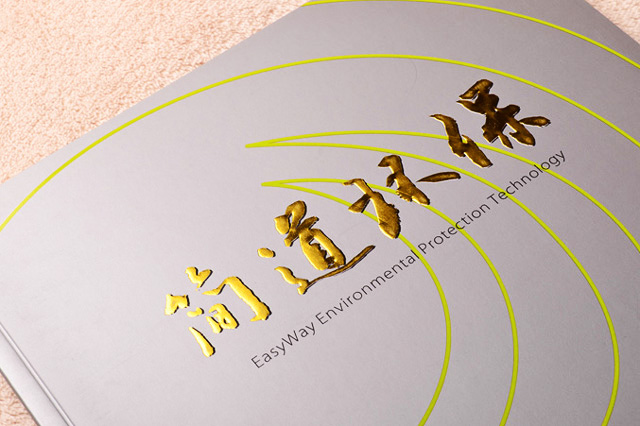 简道环保
EasyWay Environmental Protection Technology